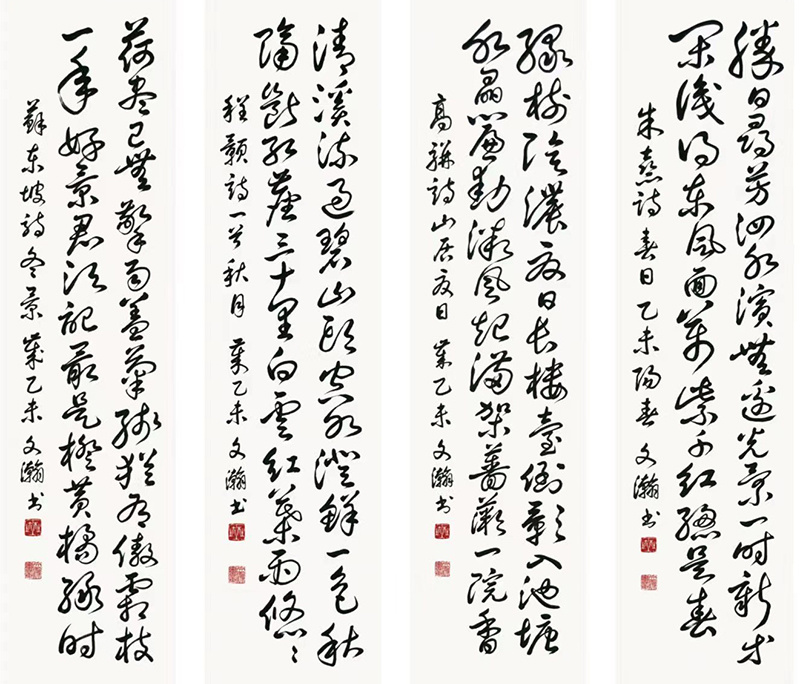 勝日尋芳泗水濱無邊光景一時新等
閑識得東風面萬紫千紅總是春
朱熹詩春日乙未陽春文瀚书
綠樹陰濃夏日長樓臺倒影入池塘
水晶簾動微風起滿架薔薇一院香
高駢詩山居夏日歲乙未文瀚书
清溪流過碧山頭空水澄鮮一色秋
隔斷紅塵三十里白雲紅葉兩悠悠
程顥詩一首秋月歲乙未文瀚书
荷盡已無擎雨蓋菊殘猶有傲霜枝
一年好景君須記最是橙黃橘綠時
蘇東坡詩冬景歲乙未文瀚书